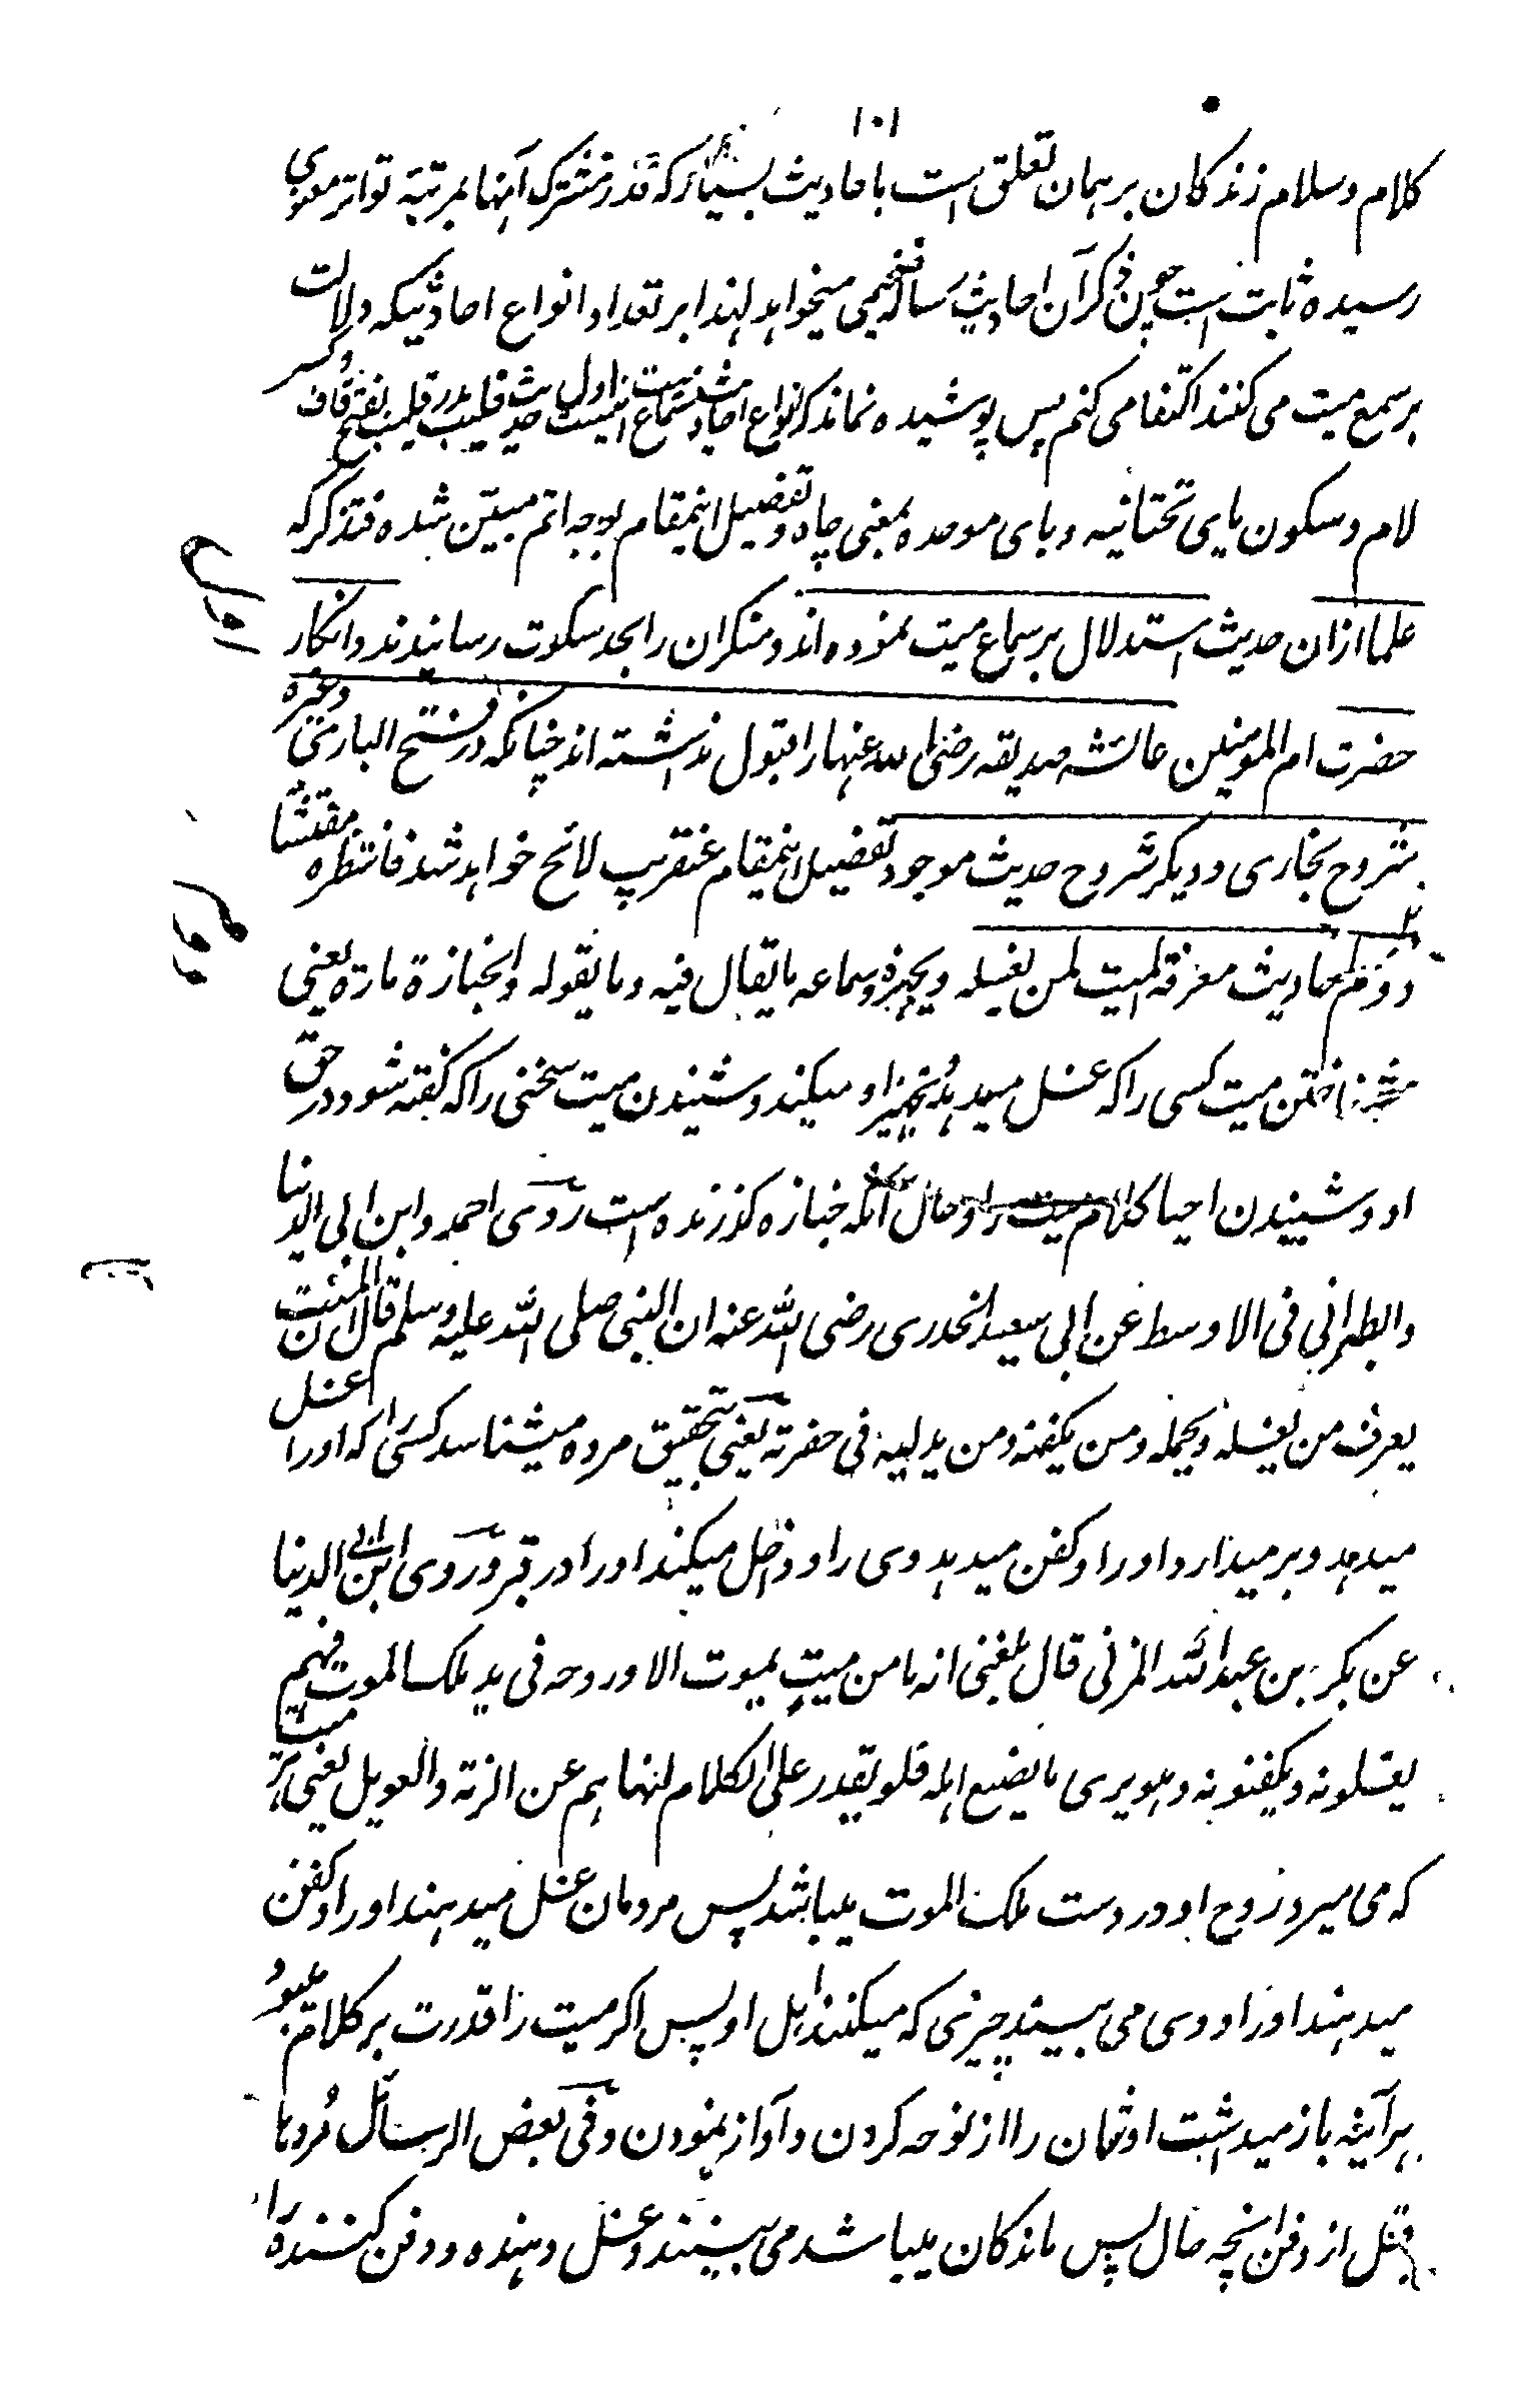 ۱۰۱
کلام و سلام زندکان برهمان تعلق است باحادیث بسیار که قدر مشترک آنها بمرتبهٔ تواتر معنوی
رسیده ثابت است چون ذکر آن احادیث رساله ضخیمی میخواهد لهذا بر تعداد انواع احادیثیکه دلالت
بر سمع میت می کنند اکتفا می کنم پس پوشیده نماند که انواع احادیث سماع اول حدیث قلیب بدر قلیب بفتح قاف وکسر
لام و سکون یای تحتانیه و بای موحده بمعنی چاه و تفصیل اینمقام بوجه اتم مبیّن شده فتذکر که
علما ازان حدیث استدلال بر سماع میت نموده اند و منکران را بحد سکوت رسانیدند و انکار
اول
حضرت ام المومنین عائشه صدیقه رضی الله عنها را قبول نداشته اند چنانکه در فتح الباری وغیره
شروح بخاری و دیکر شروح حدیث موجود تفصیل اینمقام عنقریب لائح خواهد شد فانتظره مفتشا
دوم احادیث معرفة المیت لمن یغسله و یجهزه و سماعه ما یقال فیه و ما یقوله و الجنازة مارة یعنی
دوم
شناختن میت کسی را که غسل میدهد و تجهیز او میکند و شنیدن میت سخنی را که گفته شود در حق
او و شنیدن احیا کلام میت را و حال آنکه جنازه کذرنده است روی احمد و ابن ابی الدنیا
والطبرانی فی الاوسط عن ابی سعید الخدری رضی الله عنه ان النبی صلی الله علیه وسلم قال ان المیت
یعرف من یغسله و یحمله و من یکفنه و من یدلیه فی حفرته یعنی بتحقیق مرده میشناسد کسی را که اورا غسل
میدهد و برمیدارد اورا و کفن میدهد وی را و داخل میکند اورا در قبر و روی ابن ابی الدنیا
عن بکر بن عبدالله المزنی قال بلغنی انه ما من میت یموت الا و روحه فی ید ملک الموت فهم
یغسلونه و یکفنونه و هو یری ما یصنع اهله فلو یقدر علی الکلام لنهاهم عن الرنة و العویل یعنی هر میت
که می میرد روح او در دست ملک الموت میباشد پس مردمان غسل میدهند اورا و کفن
میدهند اورا و وی می بیند چیزی که میکنند اهل او پس اکر میت را قدرت بر کلام میبود
هرآینه باز میداشت اوشان را از نوحه کردن و آواز نمودن و فی بعض الرسائل مردها
قبل از دفن انچه حال پس ماندکان میباشد می بینند و غسل دهنده و دفن کننده را